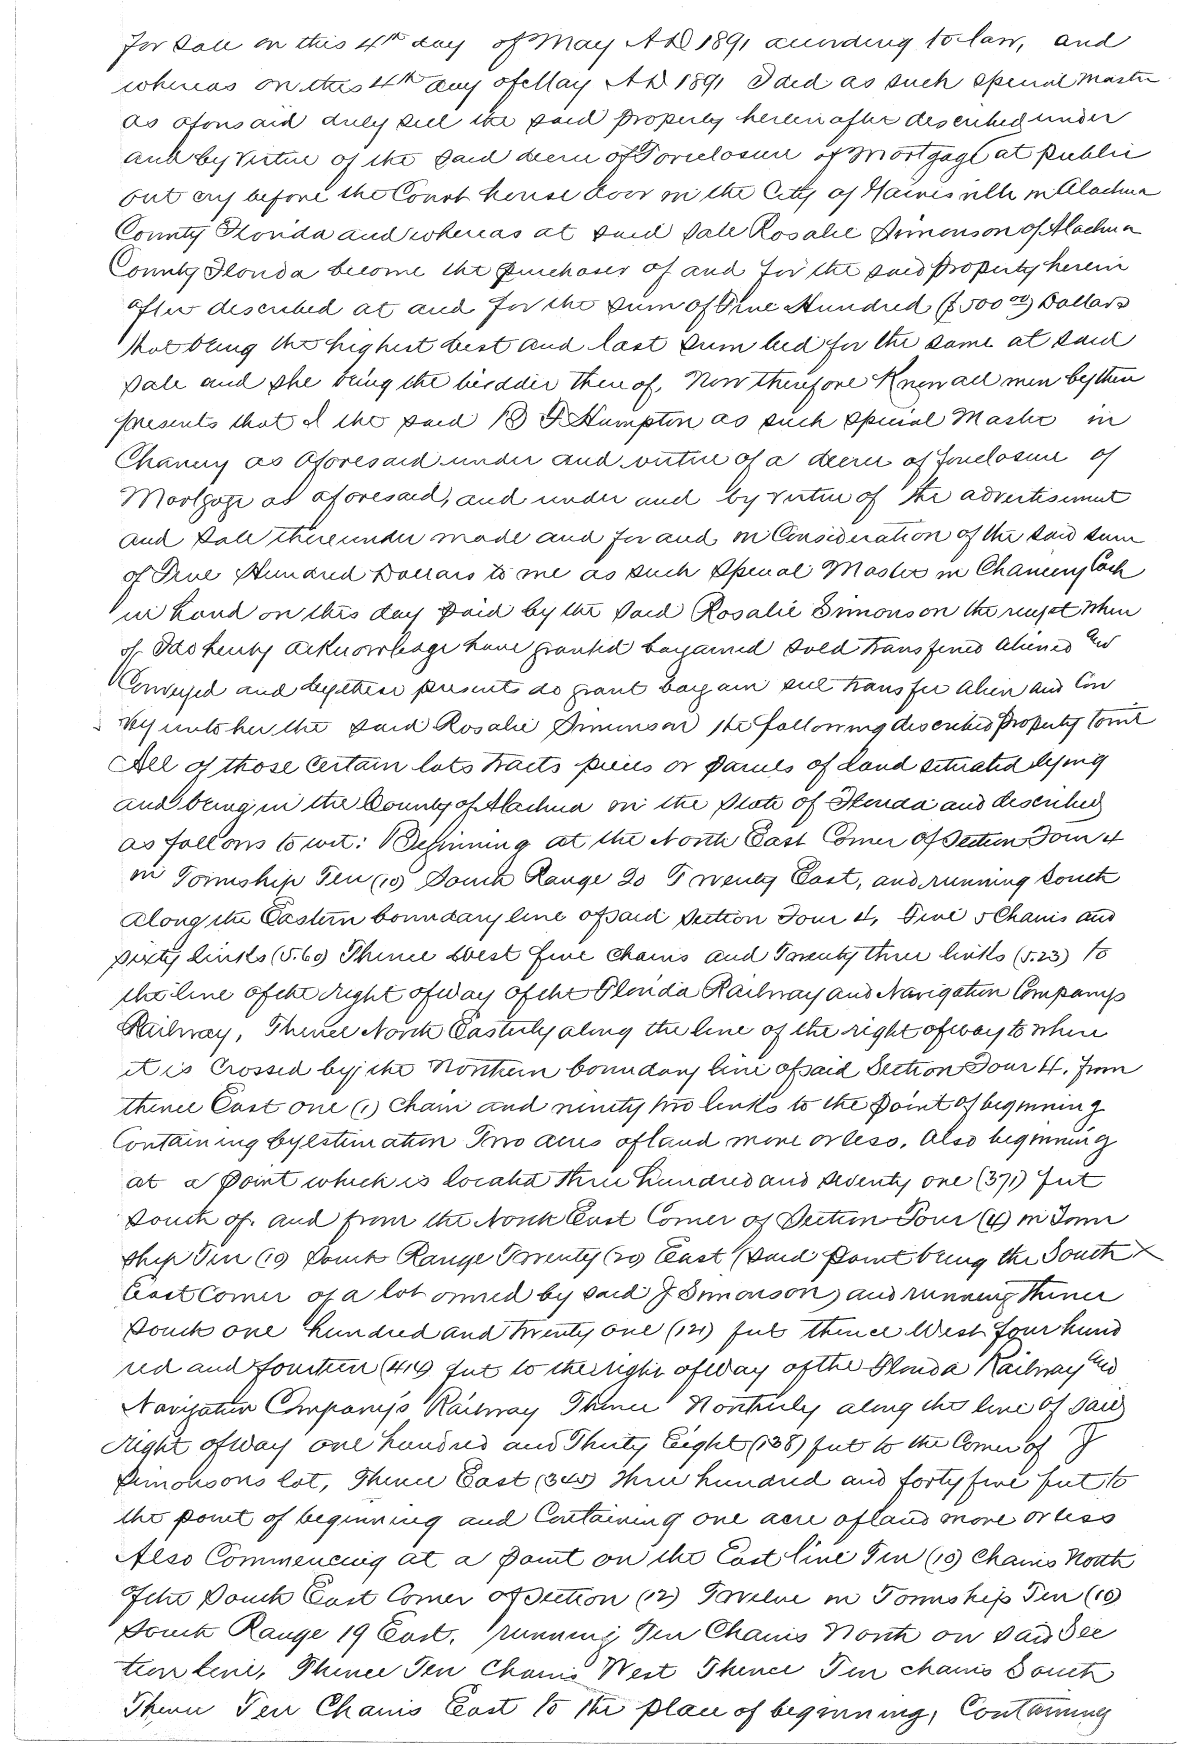 for sale on this 4th day of May AD 1891 according to law, and
whereas on this 4th day of May AD 1891 I did as such special master
as aforesaid duly sell the said property herein after described under
and by virtue of the said decree of Foreclosure of Mortgage at public
out cry before the Court house door in the City of Gainesville in Alachua
County Florida and whereas at said sale Rosalie Simonson of Alachua
County Florida become the purchaser of and for the said property herein
after described at and for the sum of Five Hundred ($500 00) Dollars
that being the highest best and last sum bid for the same at said
sale and she being the bidder there of, Now therefore Know all men by these
presents that I the said B F Hampton as such special Master in
Chancery as aforesaid under and virtue of a decree of foreclosure of
Mortgage as aforesaid, and under and by virtue of the advertisement
and sale thereunder made and for and in Consideration of the said sum
of Five Hundred Dollars to me as such special Master in Chancery Cash
in hand on this day paid by the said Rosalie Simonson the receipt where
of I do hereby acknowledge have granted bargained sold transfered aliened and
Conveyed and by these presents do grant bargain sell transfer alien and Con
vey unto her the said Rosalie Simonson the following described property towit
All of those certain lots tracts pieces or parcels of land situated lying
and being in the County of Alachua in the State of Florida and described
as follows to wit: Beginning at the North East Corner of Section Four 4
in Township Ten (10) South Range 20 Twenty East, and running South
along the Eastern boundary line of said section Four 4, Five 5 Chains and
sixty links (5.60) Thence West five chains and Twenty three links (5.23) to
the line of the right of way of the Florida Railway and Navigation Companys
Railway, Thence North Easterly along the line of the right of way to where
it is crossed by the Northern boundary line of said Section Four 4, from
thence East one (1) Chain and ninety two links to the point of beginning
Containing by estimation Two acres of land more or less, Also beginning
at a point which is located three hundred and seventy one (371) feet
south of, and from the North East Corner of Section Four (4) in Town
ship Ten (10) South Range Twenty (20) East (said point being the South X
East Corner of a lot owned by said J Simonson) and running thence
south one hundred and twenty one (121) feet thence West four hund
red and fourteen (414) feet to the right of way of the Florida Railway and
Navigation Company's Railway Thence Northerly along the line of said
right of way one hundred and Thirty Eight (138) feet to the Corner of J
Simonsons lot, Thence East (345) three hundred and forty five feet to
the point of beginning and Containing one acre of land more or less
Also Commencing at a point on the East line Ten (10) Chains North
of the South East Corner of Section (12) Twelve in Township Ten (10)
South Range 19 East, running Ten Chains North on said Sec
tion line, Thence Ten Chains West Thence Ten chains South
Thence Ten Chains East to the place of beginning, Containing